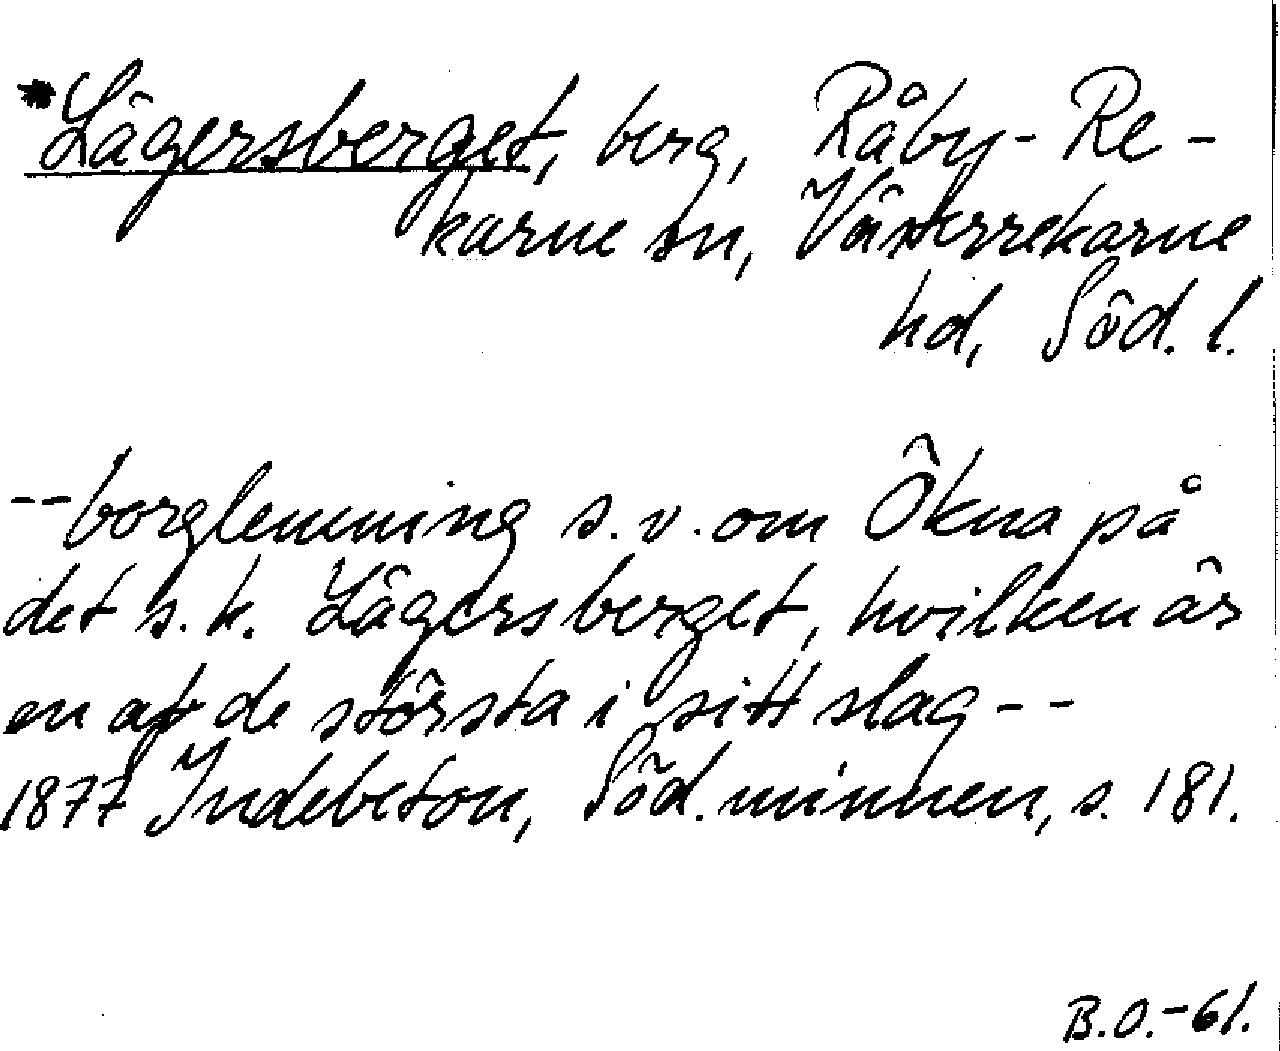 *Lägersberget, berg, Råby-Re-
karne sn, Västerrekarne
hd, Söd. l.
--borglemning s.v. om Ökna på
det s.k. Lägersberget, hvilken är
en af de största i sitt slag--
1877 Indebetou, Söd. minnen, s. 181.
B.O.-61.